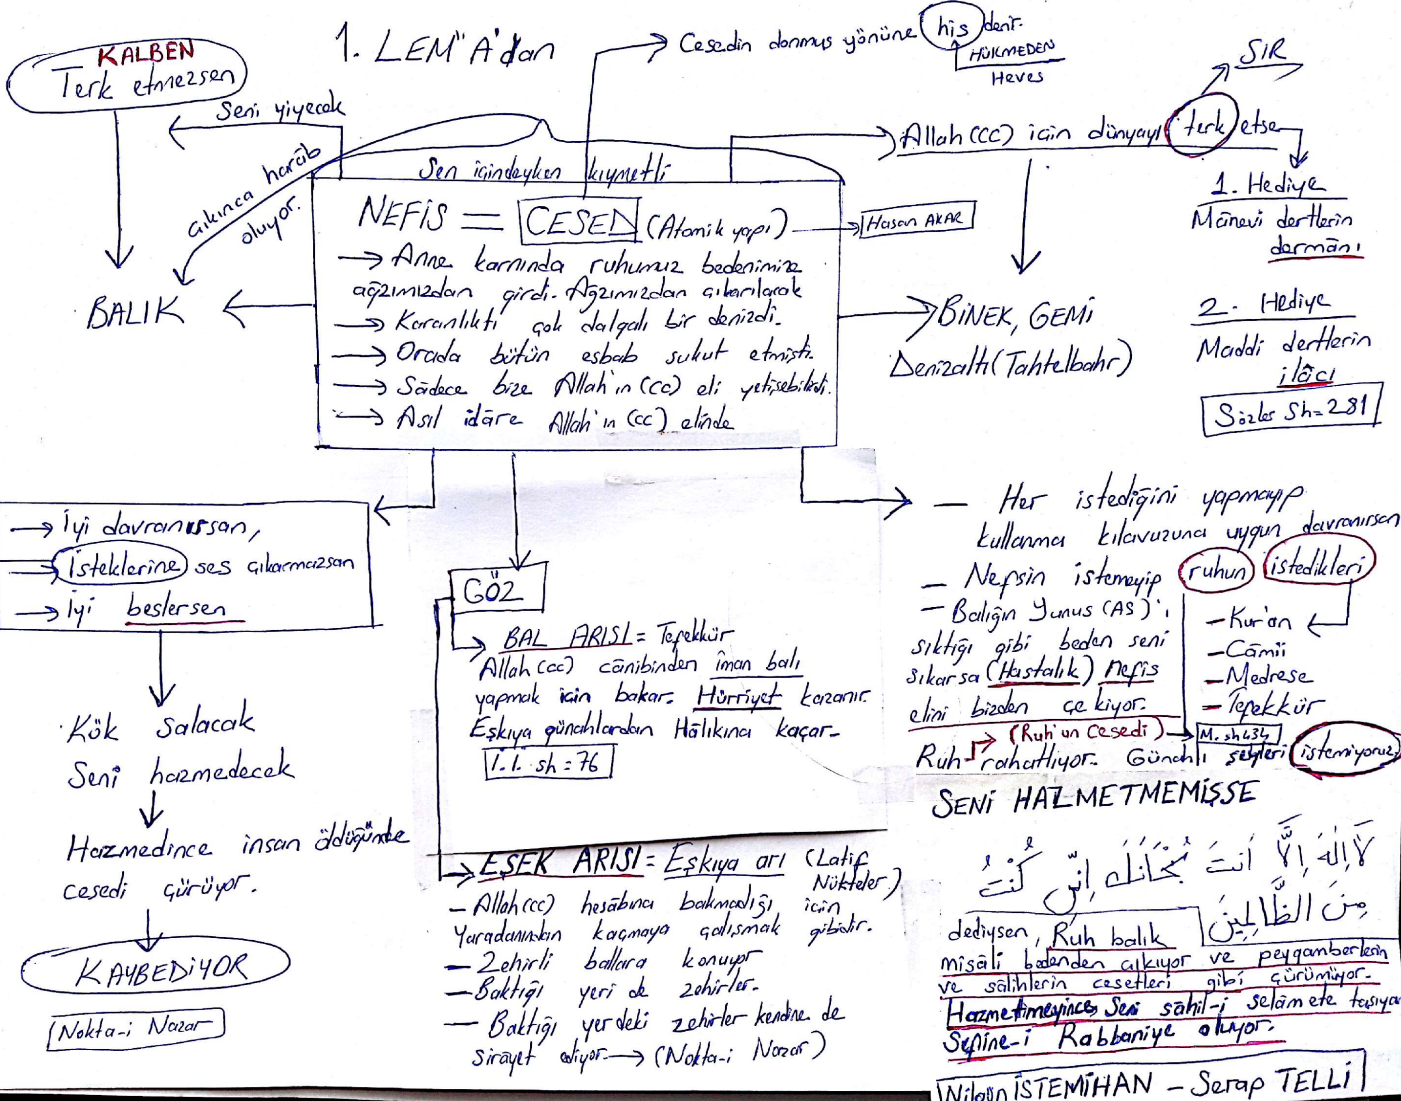 1. LEM'A'dan
KALBEN
Terk etmezsen
Seni yiyecek
çıkınca harâb
oluyor.
BALIK
Cesedin donmuş yönüne his denir.
HÜKMEDEN
Heves
SIR
Allah (cc) için dünyayı terk etse
1. Hediye
Mânevi dertlerin
dermânı
2. Hediye
Maddi dertlerin
ilâcı
Sözler Sh=281
Sen içindeyken kıymetli
NEFİS = CESED (Atomik yapı)
Hasan AKAR
→ Anne karnında ruhumuz bedenimize
ağzımızdan girdi. Ağzımızdan çıkarılacak
→ Karanlıktı çok dalgalı bir denizdi.
→ Orada bütün esbab sukut etmişti.
→ Sâdece bize Allah'ın (cc) eli yetişebilirdi.
→ Asıl idâre Allah'ın (cc) elinde
BİNEK, GEMİ
Denizaltı (Tahtelbahr)
→ İyi davranırsan,
→ İsteklerine ses çıkarmazsan
→ İyi beslersen
Kök salacak
Seni hazmedecek
Hazmedince insan öldüğünde
cesedi çürüyor.
KAYBEDİYOR
Nokta-i Nazar
GÖZ
BAL ARISI = Tefekkür
Allah (cc) cânibinden îman balı
yapmak için bakar. Hürriyet kazanır.
Eşkıya günahlardan Hâlıkına kaçar.
İ.İ. sh=76
EŞEK ARISI = Eşkıya arı (Latif
Nükteler)
- Allah (cc) hesâbına bakmadığı için
Yaradanından kaçmaya çalışmak gibidir.
- Zehirli ballara konuyor
- Baktığı yeri de zehirler.
- Baktığı yerdeki zehirler kendine de
sirâyet ediyor → (Nokta-i Nazar)
- Her istediğini yapmayıp
kullanma kılavuzuna uygun davranırsan
- Nefsin istemeyip ruhun istedikleri
- Kur'an
- Câmii
- Medrese
- Tefekkür
- Balığın Yunus (AS)'ı
sıktığı gibi beden seni
sıkarsa (Hastalık) nefis
elini bizden çekiyor.
(Ruh'un Cesedi)
M. sh 434
Ruh rahatlıyor. Günahlı şeyleri istemiyoruz
SENİ HAZMETMEMİŞSE
لَا اِلٰهَ اِلَّا اَنْتَ سُبْحَانَكَ اِنِّى كُنْتُ
مِنَ الظَّالِمِينَ
dediysen, Ruh balık
misâli bedenden çıkıyor ve peygamberlerin
ve sâlihlerin cesetleri gibi çürümüyor.
Hazmetmeyince, seni sâhil-i selâmete taşıyan
Sefine-i Rabbaniye oluyor.
Nilgün İSTEMİHAN - Serap TELLİ